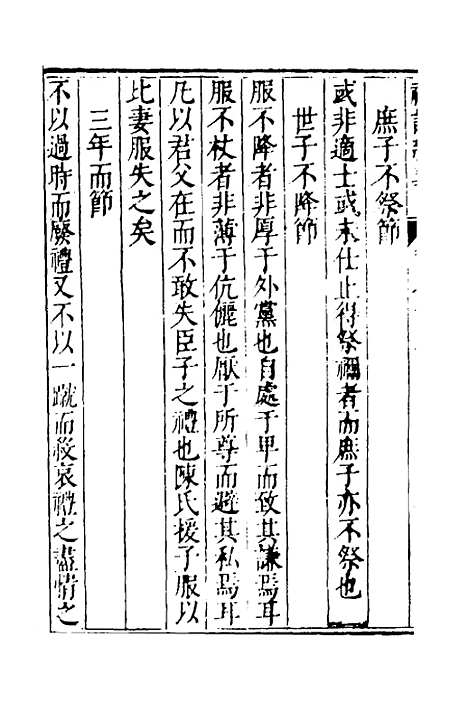 庶子不祭節
或非適士或未仕止得祭禰者而庶子亦不祭也
世子不降節
服不降者非厚于外黨也自處于卑而致其謙焉耳
服不杖者非薄于伉儷也厭于所尊而避其私焉耳
凡以君父在而不敢失臣子之禮也陳氏援子服以
比妻服失之矣
三年而節
不以過時而廢禮又不以一蹴而殺哀禮之盡情之